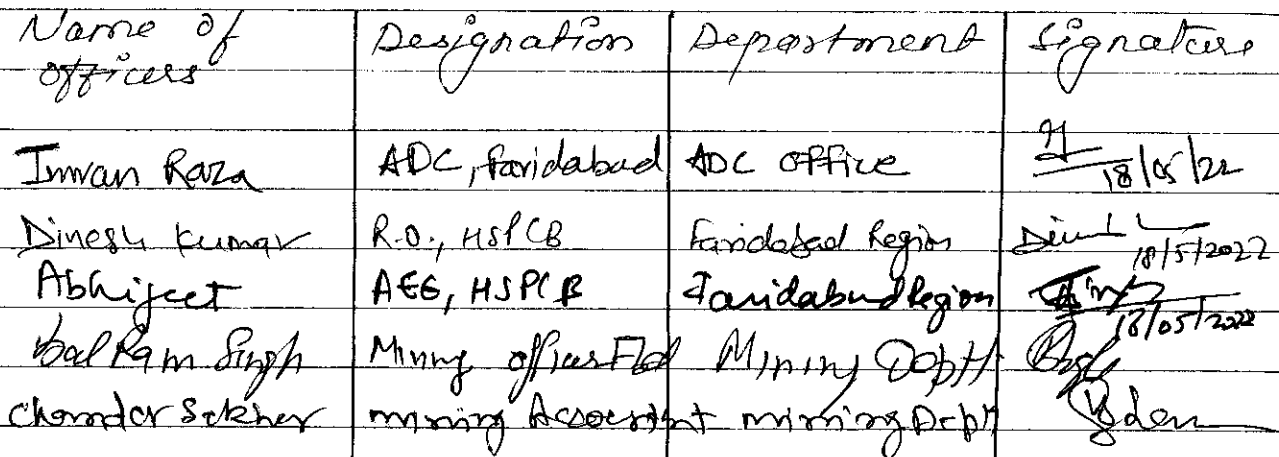 Name of officers Designation Department Signature
Imran Raza ADC, Faridabad ADC office 18/05/22
Dinesh Kumar R.O., HSPCB Faridabad Region 18/5/2022
Abhijeet AEE, HSPCB Faridabad Region 18/05/2022
Bal Ram Singh Mining officer Fbd Mining Deptt
Chander Sekher mining mining Deptt